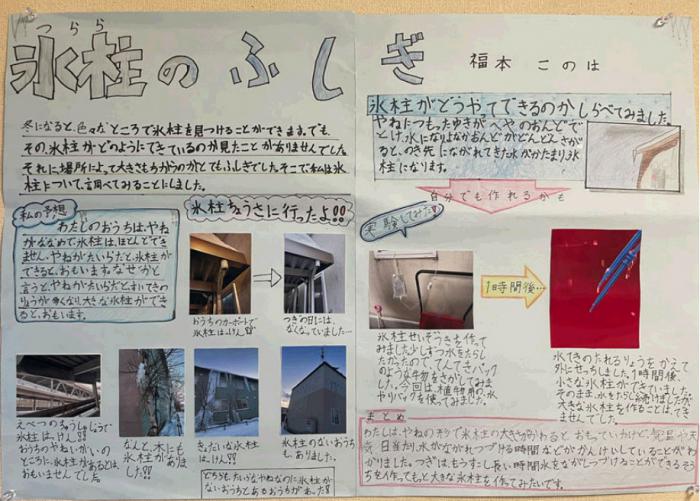 つらら
氷柱のふしぎ
福本 このは
冬になると、色々なところで氷柱を見つけることができます。でも、
その氷柱がどのようにできているのか見たことがありませんでした。
それに、場所によって大きさもちがうのがとてもふしぎでした。そこで私は氷
柱について、調べてみることにしました。
私の予想
わたしのおうちは、やね
がななめで氷柱は、ほとんどでき
ません。やねがたいらだと、氷柱が
できると、おもいます。なぜかと
言うと、やねがたいらだと
りょうが多くなり大きな氷柱ができ
ると、おもいます。
氷柱ちょうさに行ったよ!!
おうちのカーポートで
氷柱はっけん!!
つぎの日には、
なくなっていました…
えべつのちゅうしゃじょうで
氷柱はっけん!!
おうちのやねいがいの
ところに、氷柱があるとは、
おもいませんでした。
なんと、木にも
氷柱がありま
した!!
きょだいな氷柱
はっけん!!
氷柱のないおうち
も、ありました。
どちらも、たいらなやねなのに氷柱が
ないおうちとあるおうちがあった!
氷柱がどうやってできるのかしらべてみました。
やねにつもったゆきがへやのおんどで
とけ、水になりよなかおんどがどんどんさが
ると、のき先にながれてきた水がかたまり、氷
柱になります。
自分でも作れるかも
実験してみた!!
1時間後…
氷柱せいぞうきを作って
みました。少しずつ水をたらし
たかったので、てんてきパック
のような物をさがしてみま
した。今回は、植物用の水
やりパックを使ってみました。
水てきのたれるりょうをかえて
外にせっちしました。1時間後、
小さな氷柱ができていました。
そのまま、水をたらし続けましたが
大きな氷柱を作ることは、でき
ませんでした。
まとめ
わたしは、やねの形で氷柱の大きさがかわると、おもっていたけど、気温や天
気、日当たり、水がながれつづける時間などがかんけいしていることがわ
かりました。つぎは、もうすこし長い時間水をながしつづけることができるそう
ちを作ってもっと大きな氷柱を作ってみたいです。